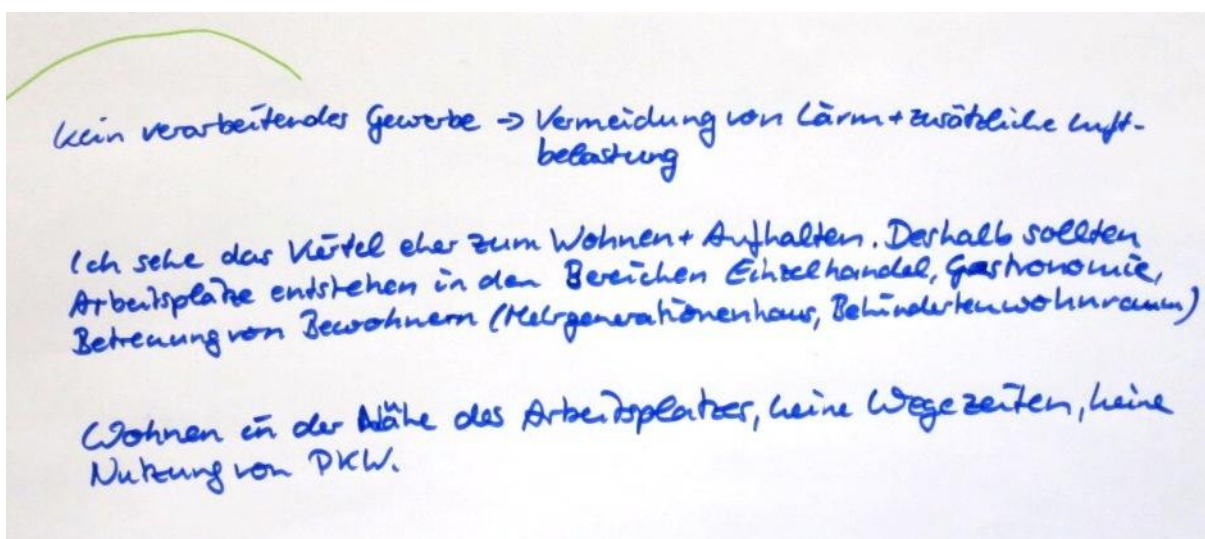 kein verarbeitendes Gewerbe → Vermeidung von Lärm + zusätzliche Luft-
belastung
Ich sehe das Viertel eher zum Wohnen + Aufhalten. Deshalb sollten
Arbeitsplätze entstehen in den Bereichen Einzelhandel, Gastronomie,
Betreuung von Bewohnern (Mehrgenerationenhaus, Behindertenwohnraum)
Wohnen in der Nähe des Arbeitsplatzes, keine Wegezeiten, keine
Nutzung von PKW.